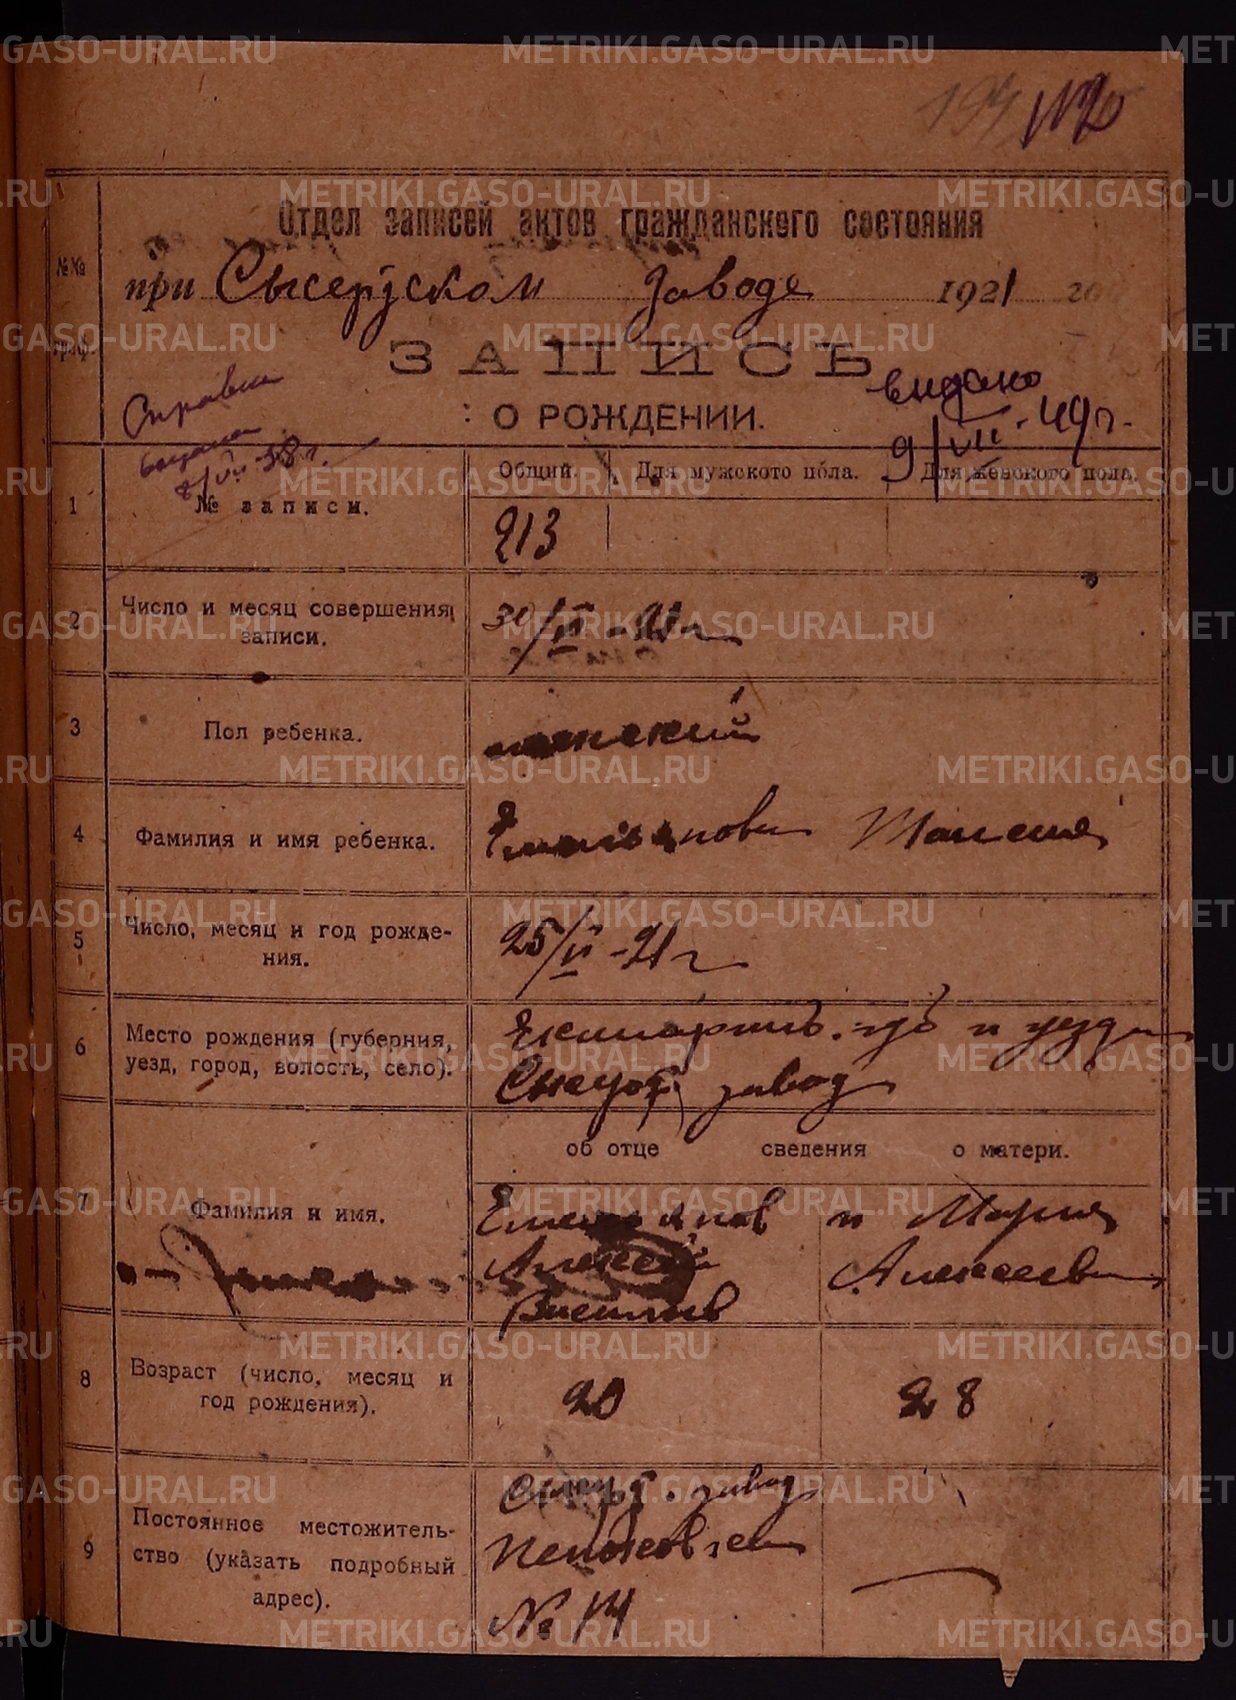 METRIKI.GASO-URAL.RU
194
Отдел записей актов гражданского состояния
№№ граф.
при Сысертском заводе 1921 год
ЗАПИСЬ
О РОЖДЕНИИ.
Справка
выдана
8/VII-38 г.
выдано
9/VII-49 г.
Общий. Для мужского пола. Для женского пола.
1 № записи. 213
2 Число и месяц совершения записи. 30/VI-21 г
3 Пол ребенка. женский
4 Фамилия и имя ребенка. Емельянова Таисия
5 Число, месяц и год рождения. 25/VI-21 г
6 Место рождения (губерния, уезд, город, волость, село). Екатеринб. губ и уезда
Сысерт. завод
об отце сведения о матери.
7 Фамилия и имя. Емельянов и Мария
Алексей Алексеевна
Васильев
8 Возраст (число, месяц и год рождения). 20 28
9 Постоянное местожительство (указать подробный адрес). Сысерт. завод
№ 14